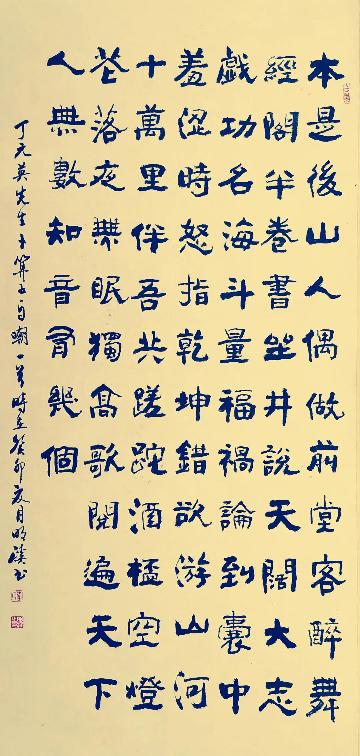 本是後山人偶做前堂客醉舞
經閣半卷書坐井說天闊大志
戲功名海斗量福禍論到囊中
羞澀時怒指乾坤錯欲游山河
十萬里伴吾共蹉跎酒空燈
花落夜無眠獨高歌閱遍天下
人無數知音有幾個
丁元英先生卜算子自嘲一首時在癸卯夏月明溪書